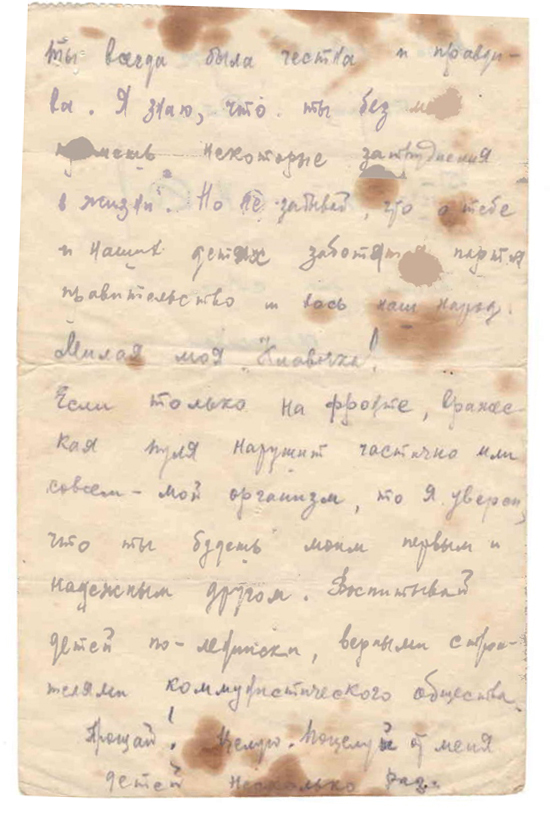 Ты всегда была честна и правди-
ва. Я знаю, что ты без
некоторые затруднения
в жизни. Но не забывай, что о тебе
и наших детях заботятся партия
правительство и весь наш народ.
Милая моя Клавочка!
Если только на фронте, вражес-
кая пуля нарушит частично или
совсем - мой организм, то я уверен,
что ты будешь моим первым и
надежным другом. Воспитывай
детей по-ленински, верными строи-
телями коммунистического общества.
Прощай! Целую. Поцелуй от меня
детей несколько раз.